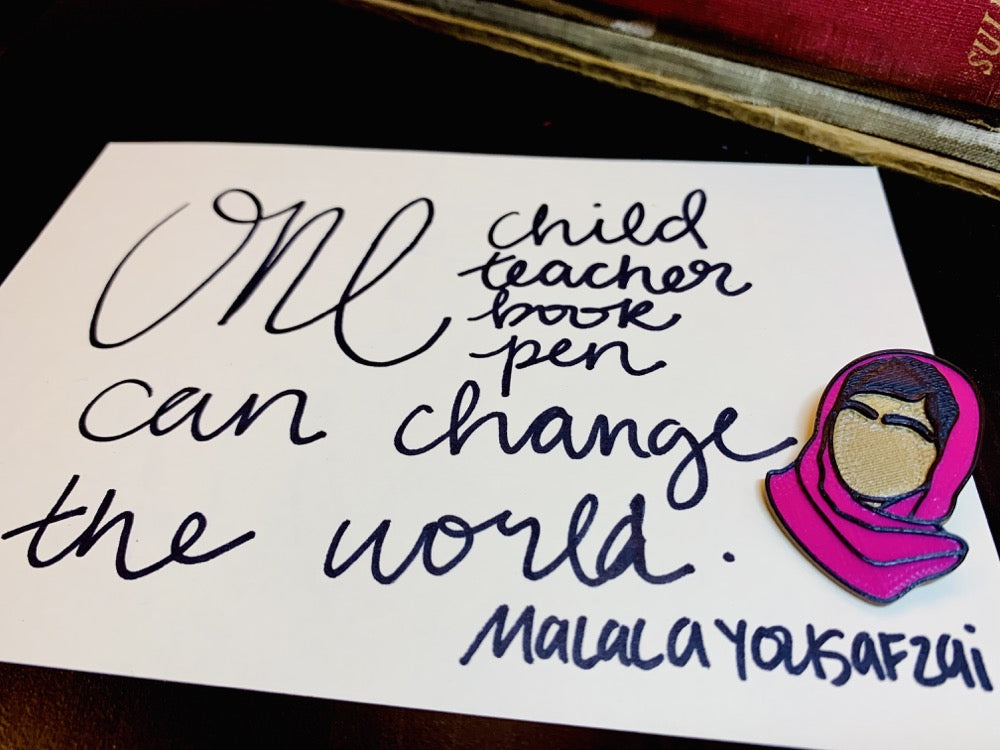 One child
teacher
book
pen
can change
the world.
Malala Yousafzai
SUL